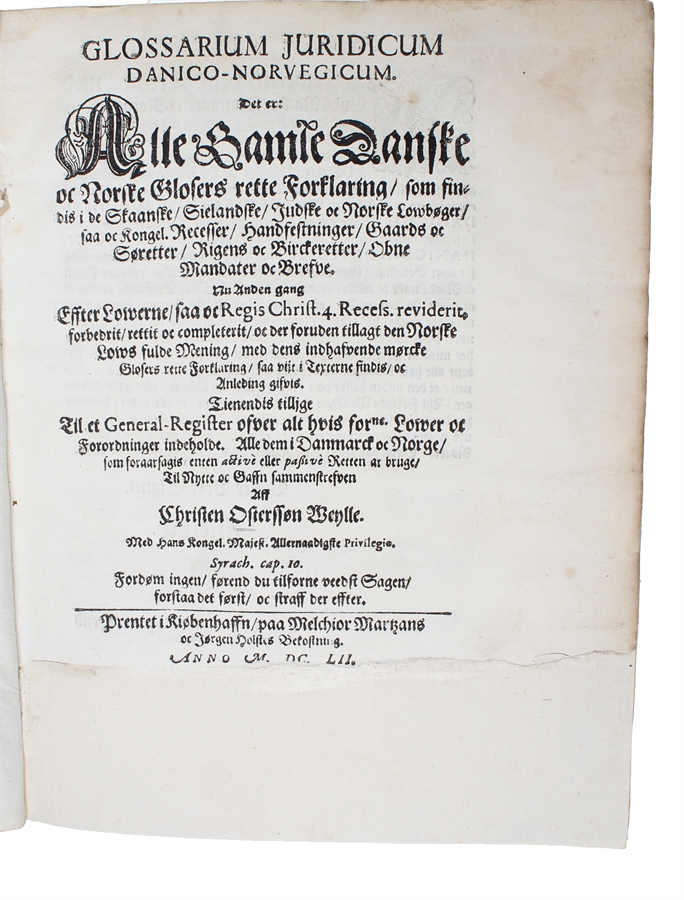 GLOSSARIUM JURIDICUM
DANICO-NORVEGICUM.
Det er:
Alle Gamle Danske
oc Norske Glosers rette Forklaring/ som fin-
dis i de Skaanske/ Sielandske/ Judske oc Norske Lowbøger/
saa oc Kongel. Recesser/ Handfestninger/ Gaards oc
Søretter/ Rigens oc Birckeretter/ Obne
Mandater oc Brefve.
Nu Anden gang
Effter Lowerne/ saa oc Regis Christ. 4. Recess. reviderit,
forbedrit/ rettit oc completerit/ oc der foruden tillagt den Norske
Lows fulde Mening/ med dens indhafvende mørcke
Glosers rette Forklaring/ saa vijt i Texterne findis/ oc
Anleding gifvis.
Tienendis tillige
Til et General-Register ofver alt hvis forne. Lower oc
Forordninger indeholde. Alle dem i Danmarck oc Norge/
som foraarsagis enten activè eller passivè Retten at bruge/
Til Nytte oc Gaffn sammenskrefven
Aff
Christen Osterssøn Weylle.
Med Hans Kongel. Majest. Allernaadigste Privilegio.
Syrach. cap. 10.
Fordøm ingen/ førend du tilforne veedst Sagen/
forstaa det først/ oc straff der effter.
Prentet i Kiøbenhaffn/ paa Melchior Martzans
oc Jørgen Holstes Bekostning.
ANNO M. DC. LII.